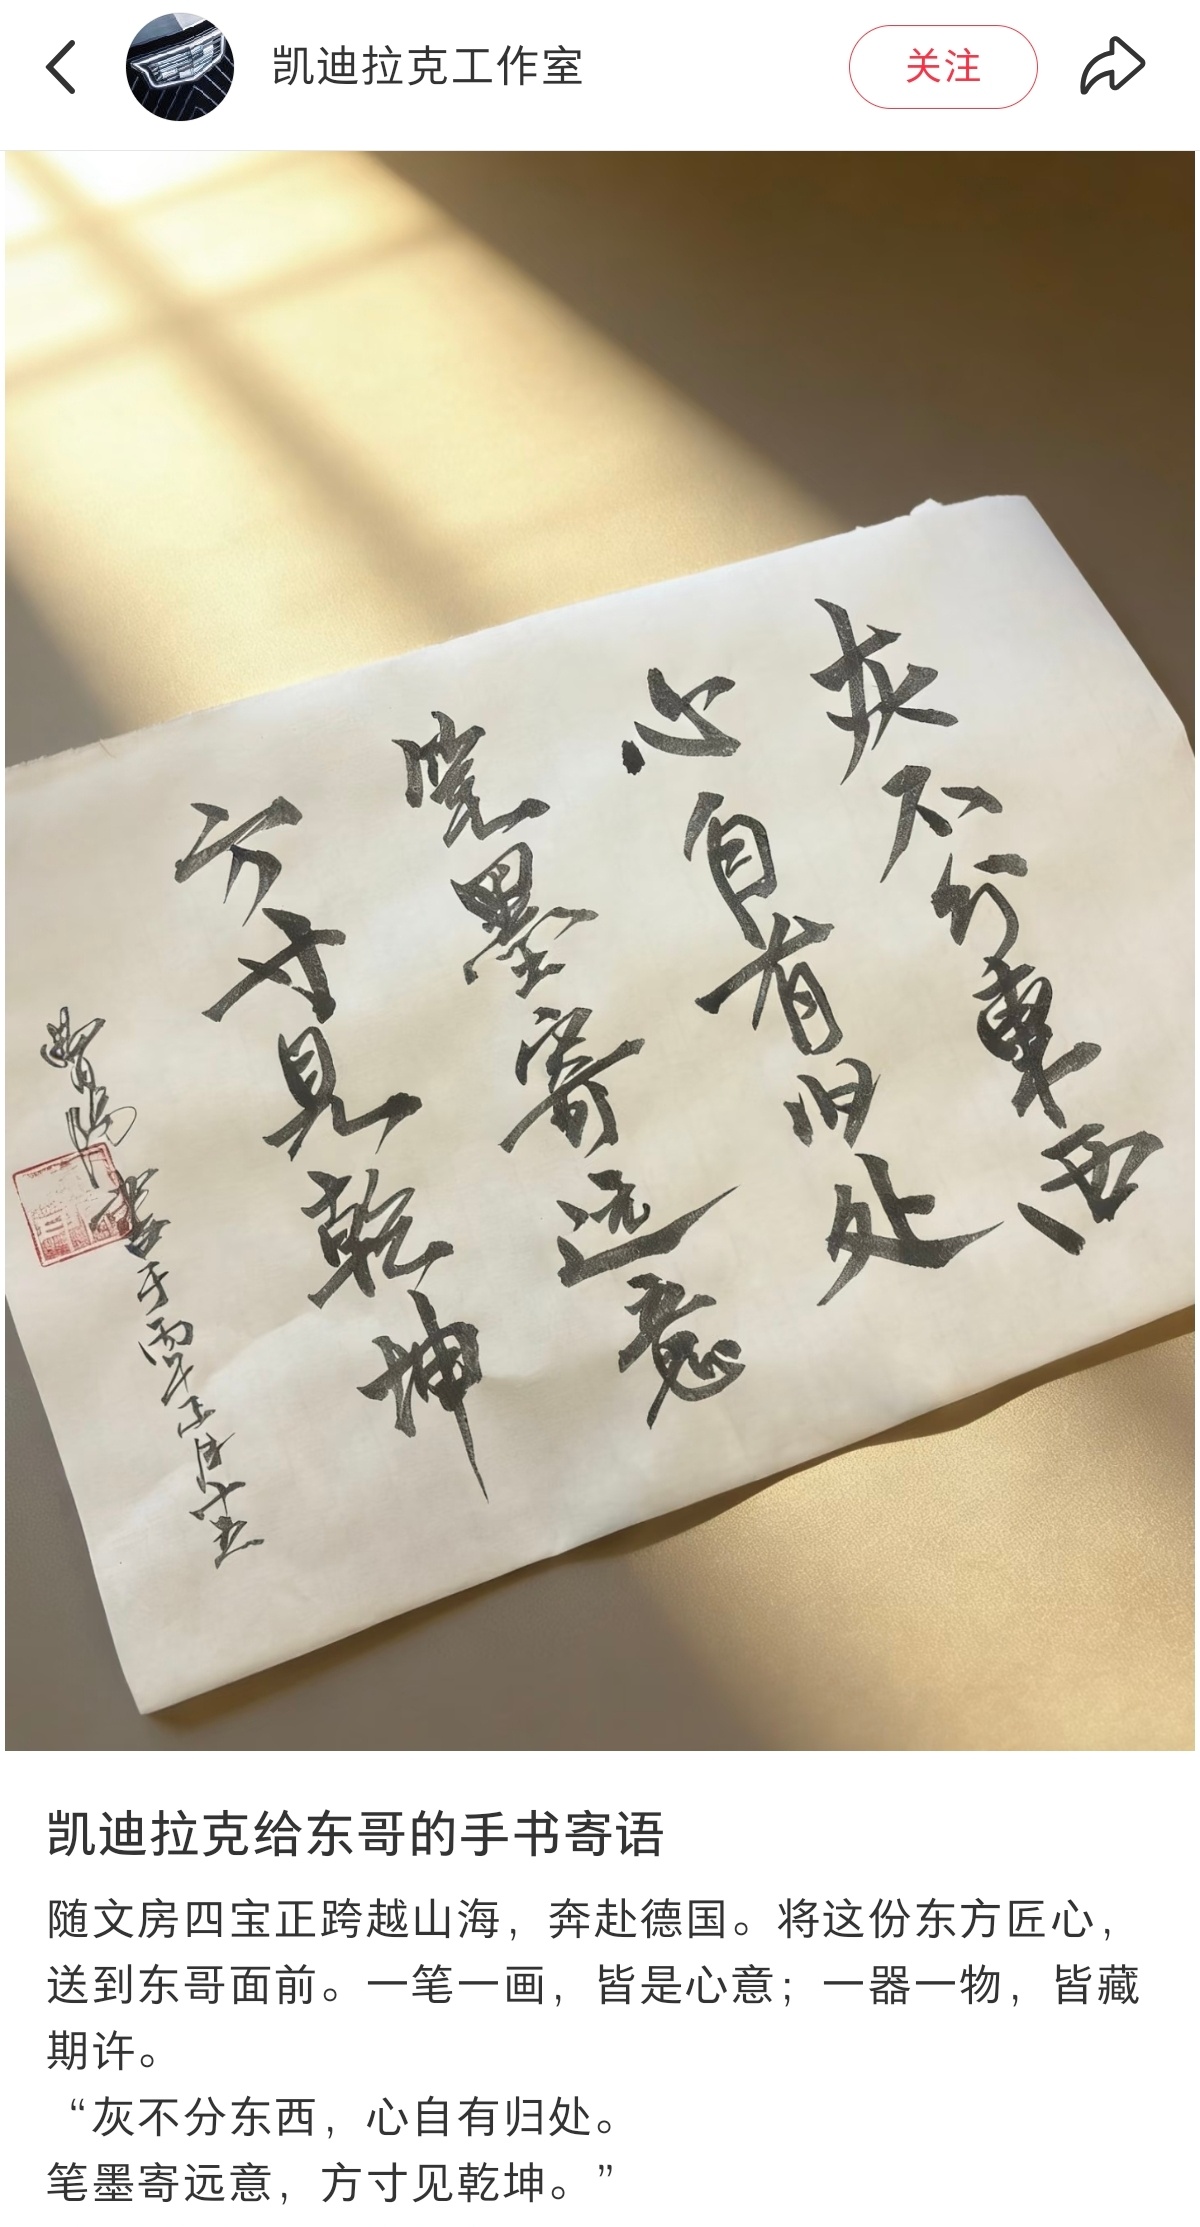 凯迪拉克工作室
关注
灰不分東西
心自有旧处
墨寄远意
方寸見乾坤
书于丙午正月十五
凯迪拉克给东哥的手书寄语
随文房四宝正跨越山海，奔赴德国。将这份东方匠心，
送到东哥面前。一笔一画，皆是心意；一器一物，皆藏
期许。
“灰不分东西，心自有归处。
笔墨寄远意，方寸见乾坤。”